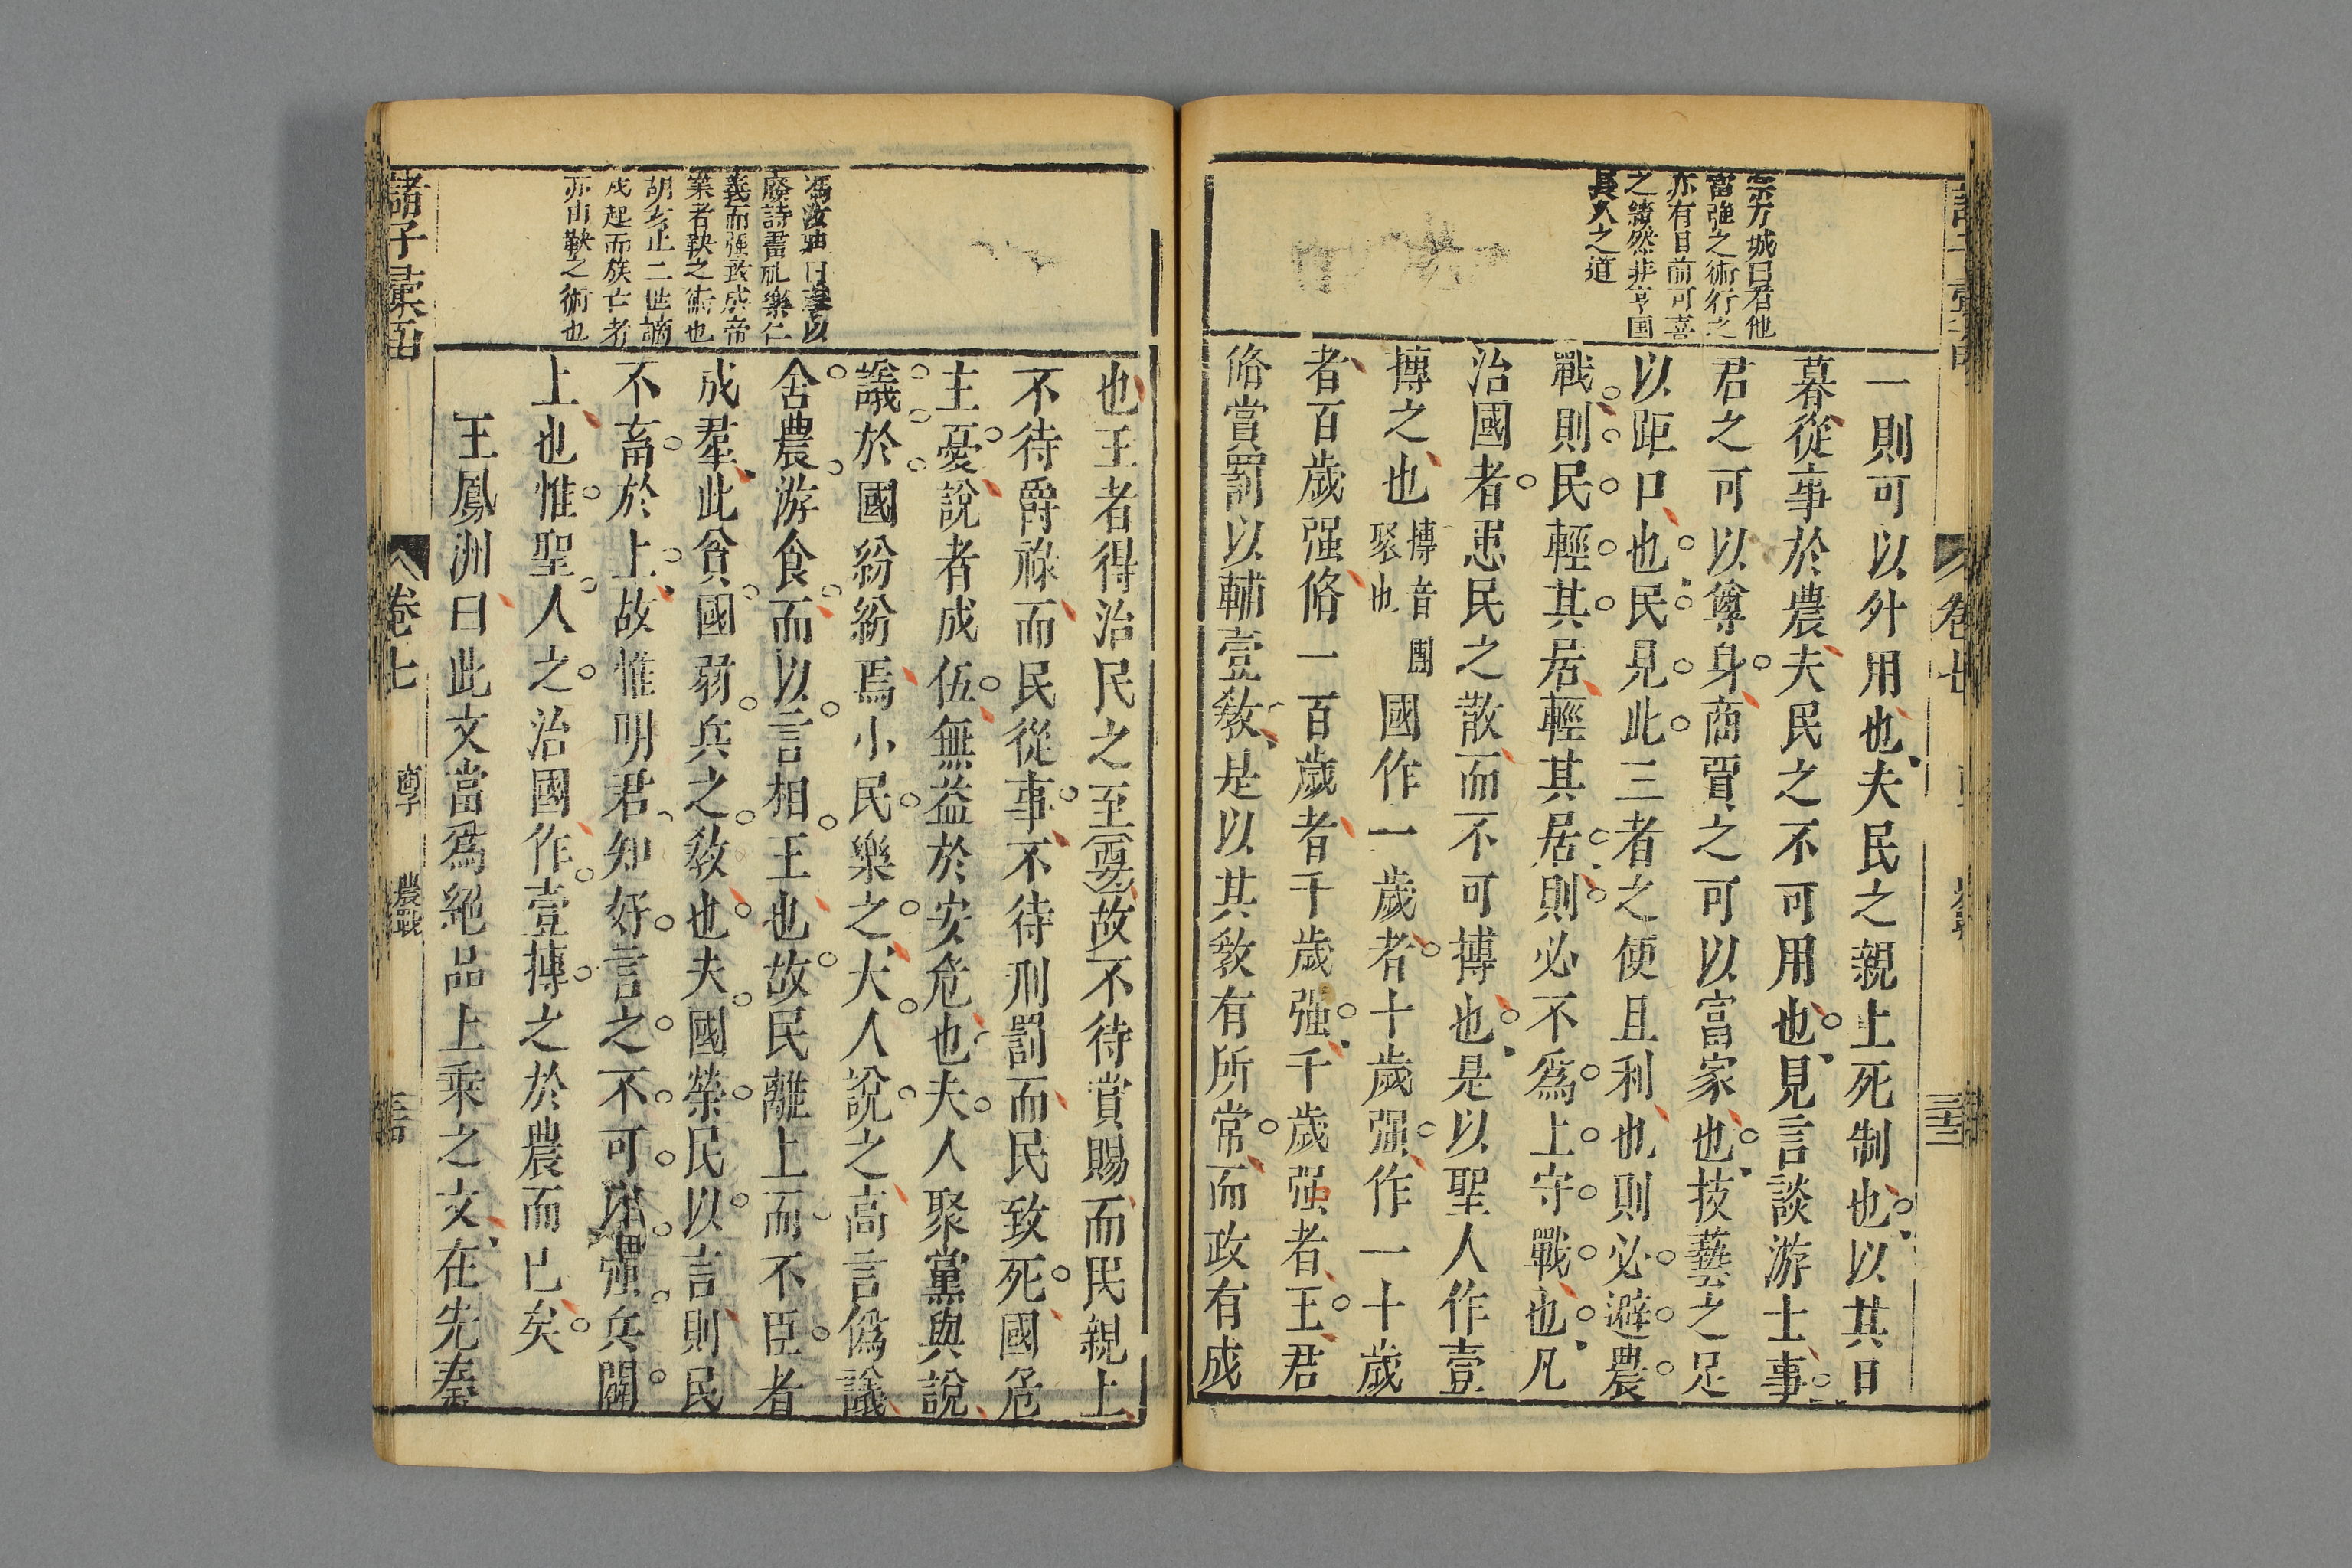 宗方城曰看他
富強之術行之
亦有目前可喜
之績然非亨国
長久之道
一則可以外用也夫民之親上死制也以其旦
暮從事於農夫民之不可用也見言談游士事
君之可以尊身商賈之可以富家也技藝之足
以距口也民見此三者之便且利也則必避農
戰則民輕其居輕其居則必不爲上守戰也凡
治國者患民之散而不可摶也是以聖人作壹
摶之也
摶音團
聚也
國作一歲者十歲强作一十歲
者百歲强脩一百歲者千歲强千歲强者王君
脩賞罰以輔壹敎是以其敎有所常而政有成
卷七
三十三
馮汝
廢詩書礼樂仁
義而强致成帝
業者鞅之術也
胡亥止二世謫
戍起而族亡者
亦由鞅之術也
也王者得治民之至要故不待賞賜而民親上
不待爵祿而民從事不待刑罰而民致死國危
主憂說者成伍無益於安危也夫人聚黨與說
議於國紛紛焉小民樂之大人說之高言僞議
舍農游食而以言相王也故民離上而不臣者
成羣此貧國弱兵之敎也夫國榮民以言則民
不畜於上故惟明君知好言之不可以彊兵闢
上也惟聖人之治國作壹摶之於農而已矣
王鳳洲曰此文當爲絕品上乘之文在先秦
諸子彙函
卷七
農戰